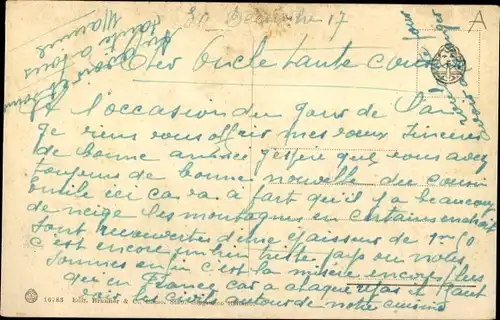 30 Décembre 17
Cher Oncle tante cousin
A l'occasion du jour de l'an
je viens vous offrir mes vœux sincères
de bonne année j'espère que vous avez
toujours de bonne nouvelle du cousin
Emile ici ca va a part qu'il y a beaucoup
de neige les montagnes en certains endroit
sont recouvertes d'une épaisseur de 1m50
c'est encore un bien triste pays ou nous
sommes enfin c'est la misère encore plus
qu'en France car a chaque repas il faut
voir les civils autour de notre cuisine
Au revoir
tante a tous
Maurice
16183 Edit. Brunner & C.